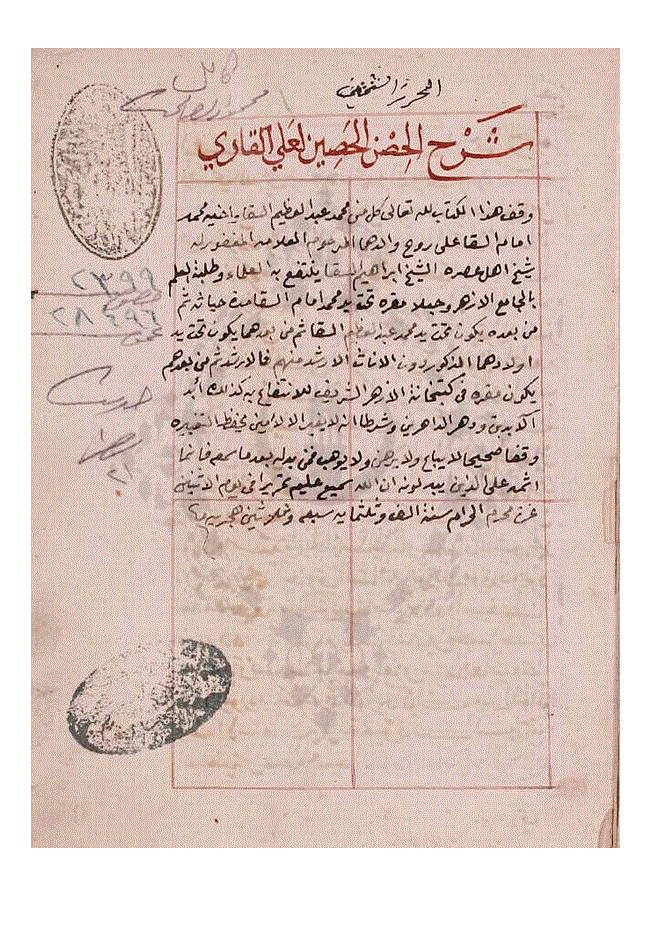 كامل
شرح الحصن الحصين لعلي القاري
وقف هذا الكتاب لله تعالى كل من محمد عبد العظيم السقا وأخيه محمد
امام السقا على روح والدهما المرحوم العلامه المغفور له
شيخ اهل عصره الشيخ ابراهيم السقا لينتفع به العلماء وطلبة العلم
بالجامع الازهر وجعلا مقره تحت يد محمد امام السقا مدة حياته ثم
من بعده يكون تحت يد محمد عبد العظيم السقا ثم من بعدهما يكون تحت يد
اولادهما الذكور دون الاناث الارشد منهم فالارشد ثم من بعدهم
يكون مقره في كتبخانة الازهر الشريف للانتفاع به كذلك أبد
الآبدين ودهر الداهرين وشرطا انه لا يغير الا لامين
وقفا صحيحا لا يباع ولا يرهن ولا يوهب فمن بدله بعد ما سمعه فانما
اثمه على الذين يبدلونه ان الله سميع عليم تحريرا في يوم الاثنين
من محرم الحرام سنة الف وثلثمايه سبعه وثلاثين هجريه
٢٣٩٩
٢٨٤٩٦
حديث